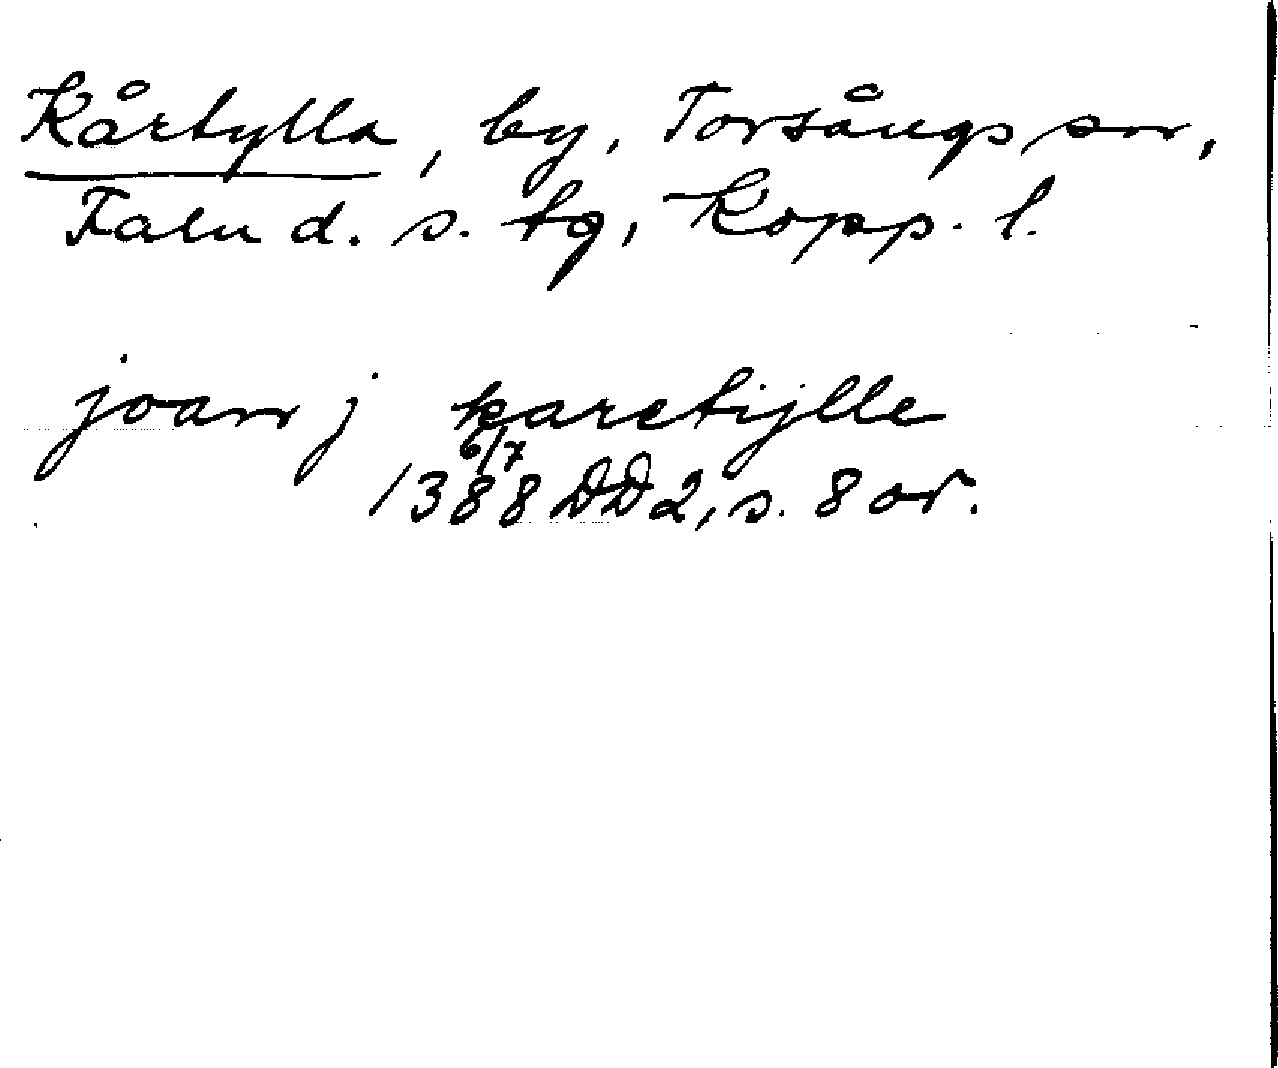 Kårtylla, by, Torsångs sn,
Falu d. s. tg, Kopp. l.
joan j karetijlle
1388 6/7 DD2, s. 8 or.